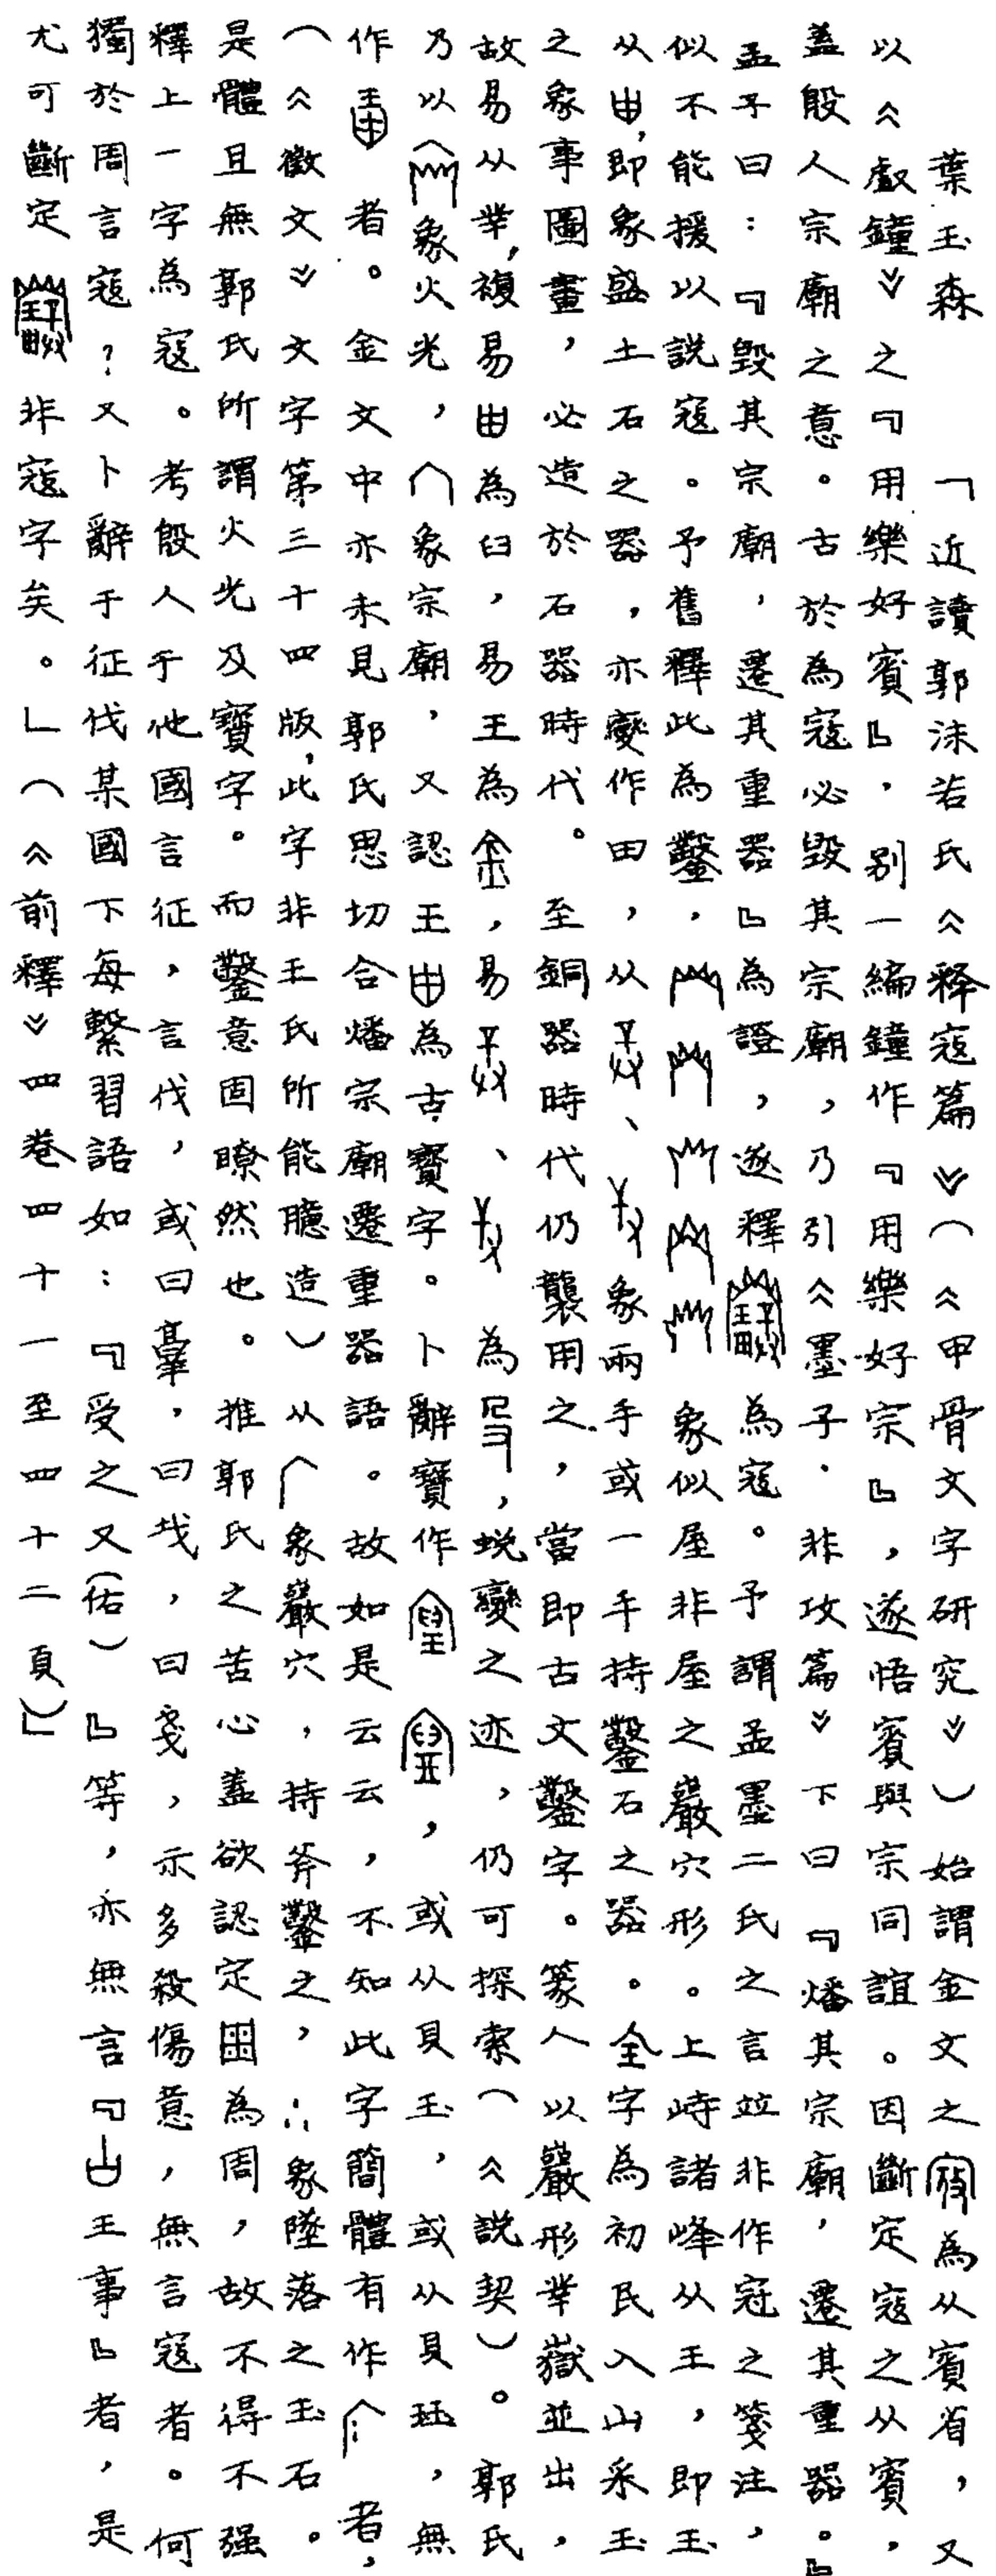 葉玉森　「近讀郭沫若氏《释寇篇》（《甲骨文字研究》）始謂金文之為从賓省，又
以《𠭯鐘》之『用樂好賓』，别一編鐘作『用樂好宗』，遂悟賓與宗同誼。因斷定寇之从賓，
蓋殷人宗廟之意。古於為寇必毀其宗廟，乃引《墨子·非攻篇》下曰『燔其宗廟，遷其重器。』
孟子曰：『毀其宗廟，遷其重器』為證，遂釋為寇。予謂孟墨二氏之言竝非作寇之箋注，
似不能援以說寇。予舊釋此為鑿，象似屋非屋之巖穴形。上峙諸峰从王，即玉
从甾，即象盛土石之器，亦變作田，从、象兩手或一手持鑿石之器。全字為初民入山采玉
之象事圖畫，必造於石器時代。至銅器時代仍襲用之，當即古文鑿字。篆人以巖形丵嶽並出，
故易从丵，複易甾為臼，易王為金，易、為殳，蜕變之迹，仍可探索（《說契》）。郭氏
乃以象火光，宀象宗廟，又認王甾為古寶字。卜辭寶作，或从貝玉，或从貝珏，無
作者。金文中亦未見郭氏思切合燔宗廟遷重器語。故如是云云，不知此字簡體有作者，
（《徵文》文字第三十四版，此字非王氏所能臆造）从象巖穴，持斧鑿之，象墜落之玉石。
是體且無郭氏所謂火光及寶字。而鑿意固瞭然也。推郭氏之苦心蓋欲認定為周，故不得不强
釋上一字為寇。考殷人于他國言征，言伐，或曰臺，曰𢦏，曰戔，示多殺傷意，無言寇者。何
獨於周言寇？又卜辭于征伐某國下每繫習語如：『受之又（佑）』等，亦無言『王事』者，是
尤可斷定非寇字矣。」（《前釋》四卷四十一至四十二頁）」